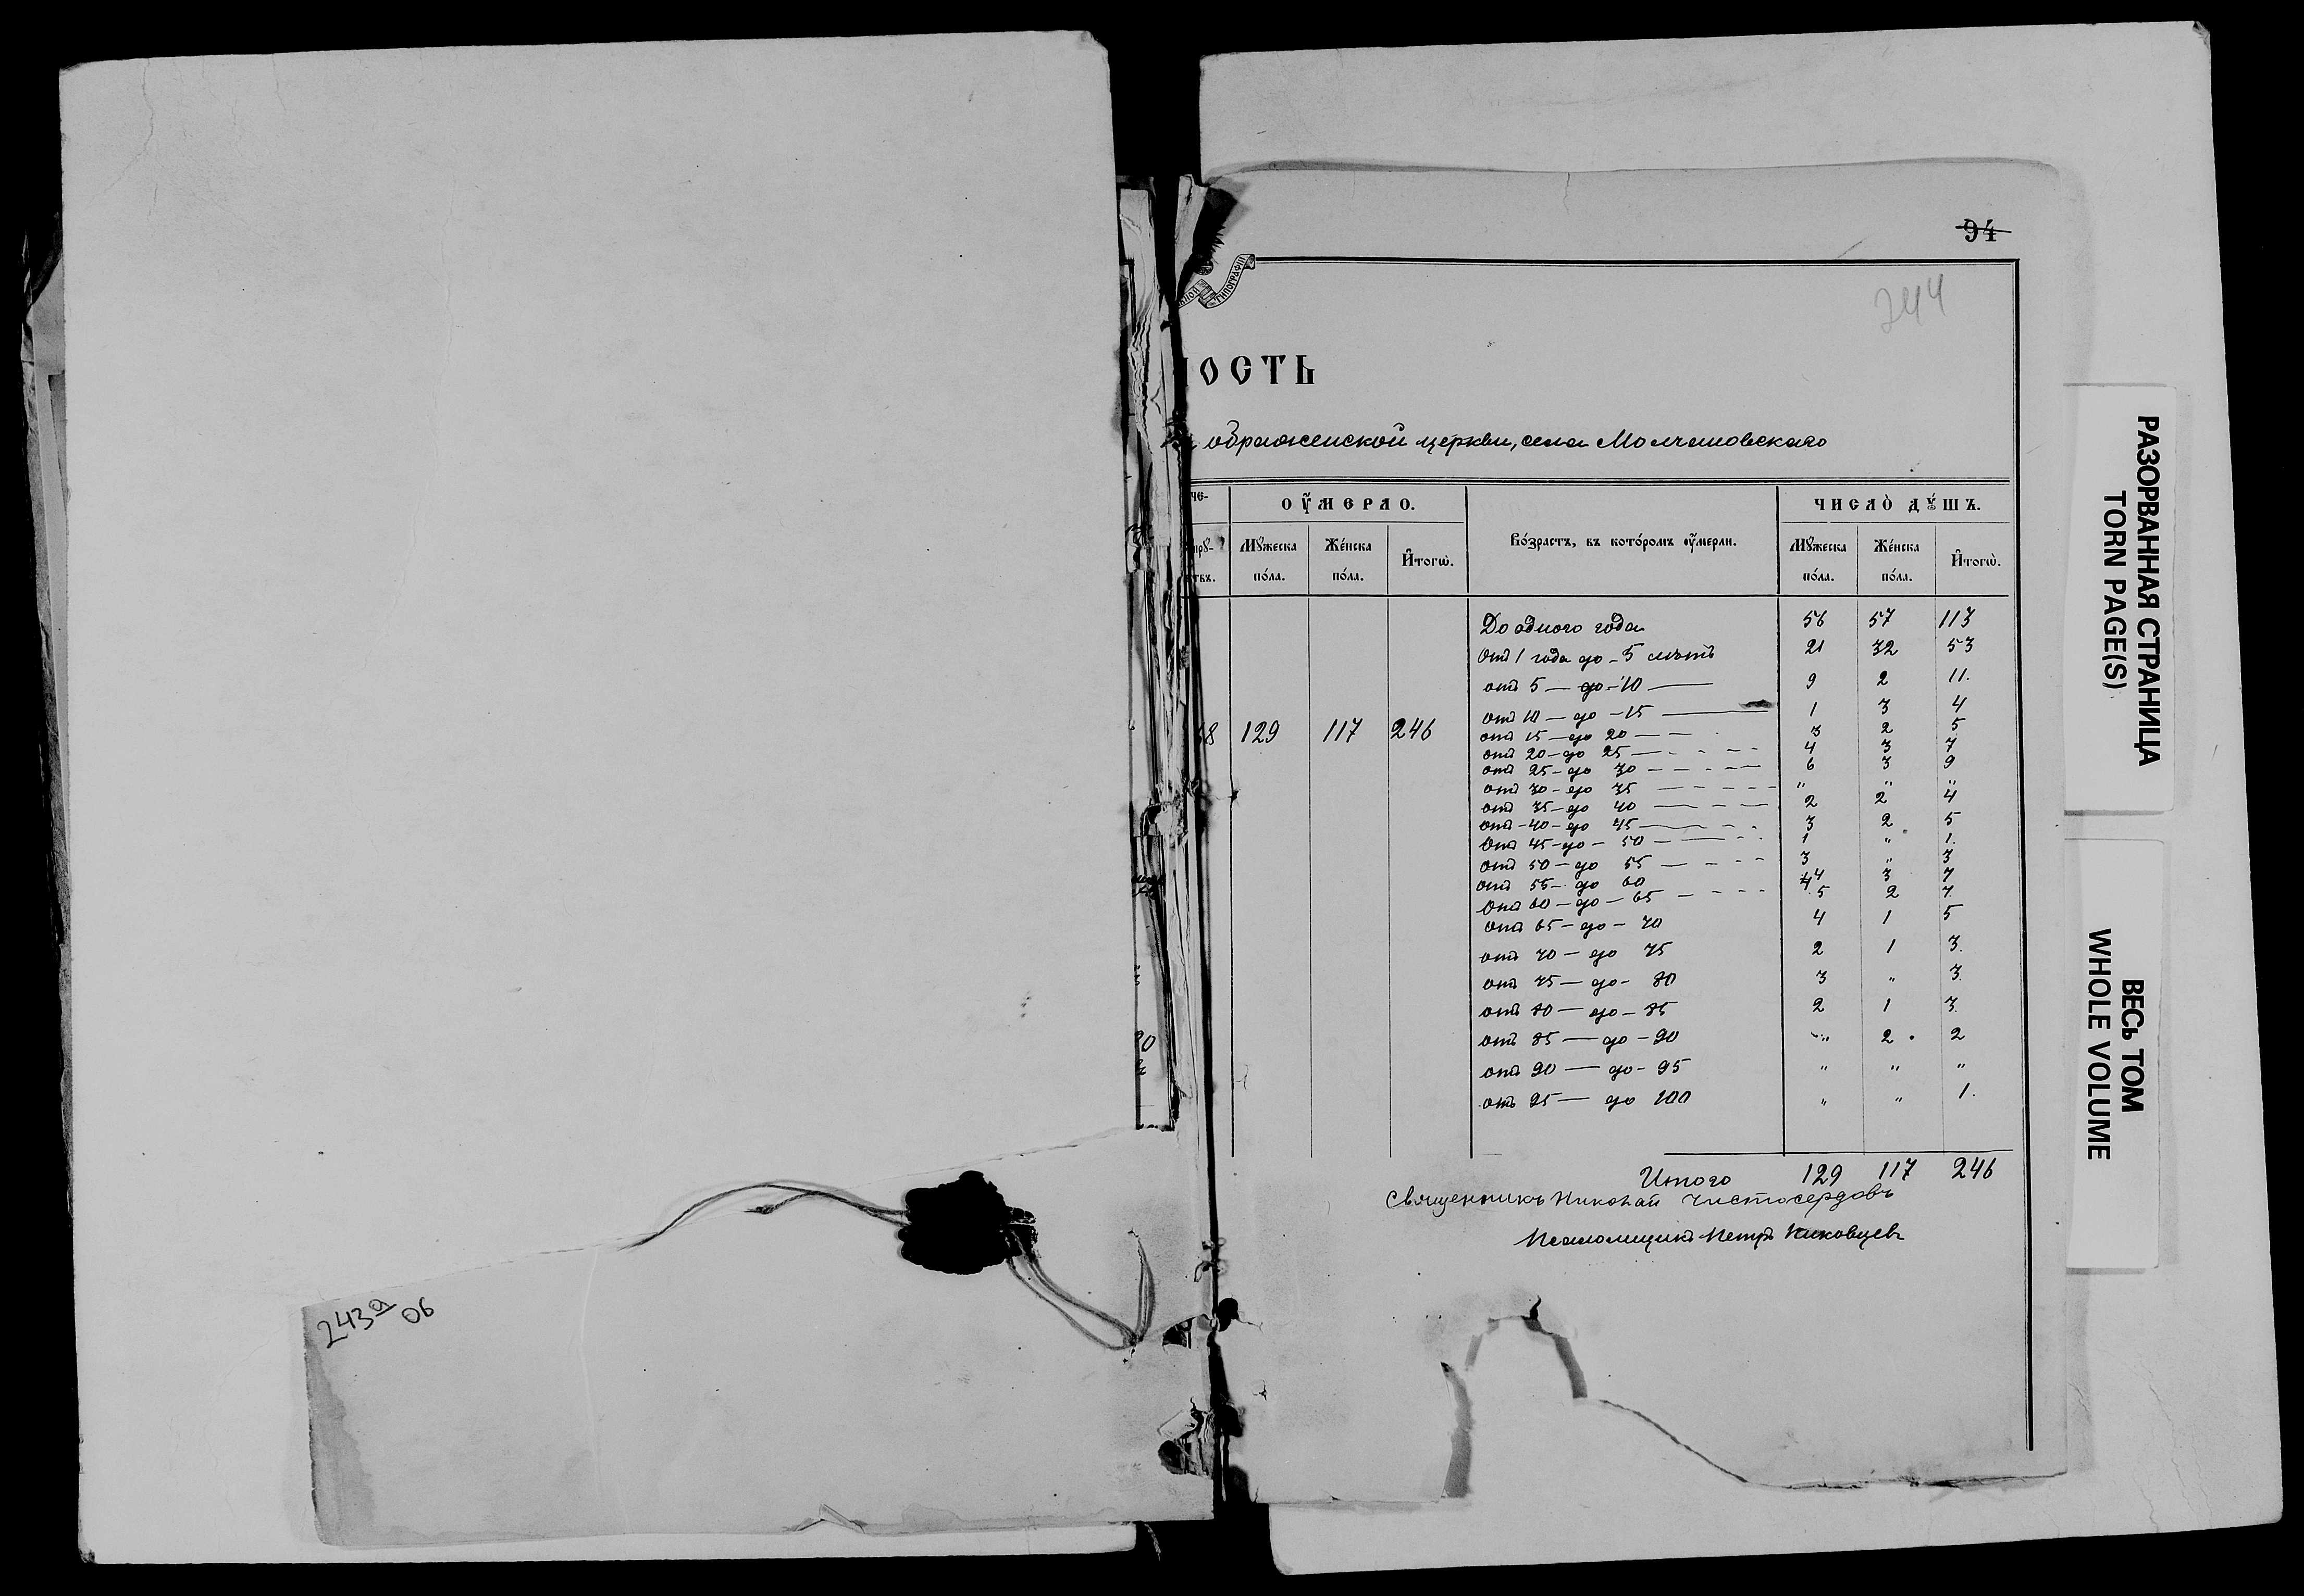 243а об
94
244
ТИПОГРАФІИ
ОСТЬ
ображенской церкви, села Молчановскаго
че-
Оу҆мерло.
Число̀ дꙋ́шъ.
Мꙋжеска по́ла.
Же́нска по́ла.
И҆тогѡ̀.
Во́зрастъ, въ кото́ромъ оу҆мерли.
Мꙋжеска по́ла.
Же́нска по́ла.
И҆тогѡ̀.
До одного года 56 57 113
отъ 1 года до - 5 лѣтъ 21 32 53
отъ 5 — до - 10 — 9 2 11.
отъ 10 — до - 15 — 1 3 4
8 129 117 246
отъ 15 — до 20 — — 3 2 5
отъ 20 - до 25 — - - - 4 3 7
отъ 25 - до 30 — — - — 6 3 9
отъ 30 - до 35 — - - - - " " "
отъ 35 — до 40 — — - — 2 2 4
отъ - 40 - до 45 — — - - 3 2 5
Отъ 45 - до - 50 — — - - 1 " 1.
отъ 50 — до 55 — - - - 3 " 3
отъ 55 - до 60 4 3 7
Отъ 60 — до — 65 — - - - 5 2 7
Отъ 65 — до — 70 4 1 5
отъ 70 — до 75 2 1 3.
отъ 75 — до - 80 3 " 3.
отъ 80 — до — 85 2 1 3.
отъ 85 — до - 90 " 2 . 2
отъ 90 — до - 95 " " "
отъ 95 — до 100 " " 1.
Итого 129 117 246
Священникъ Николай Чистосердовъ
Псаломщикъ Петръ
РАЗОРВАННАЯ СТРАНИЦА
TORN PAGE(S)
ВЕСЬ ТОМ
WHOLE VOLUME